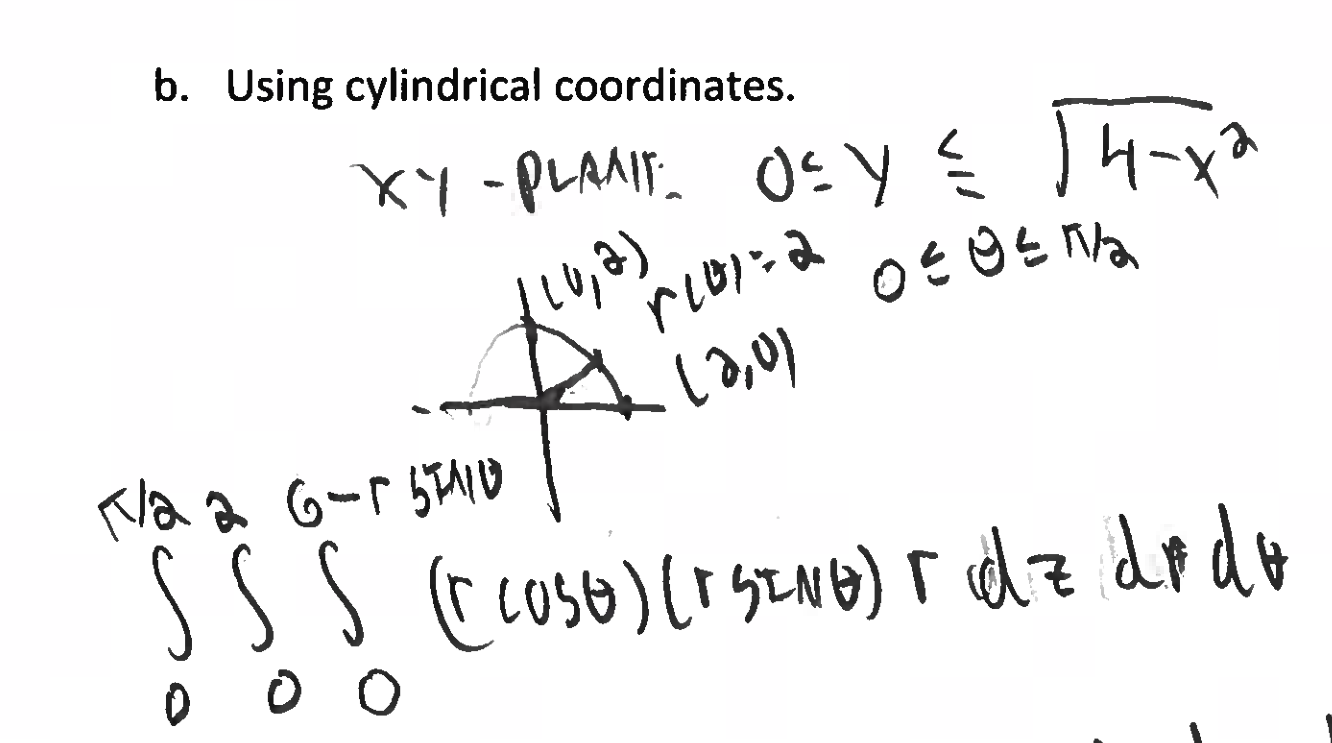 b. Using cylindrical coordinates.
XY-PLANE 0≤ Y ≤ √4-x²
(0,2) r(θ)=2 0 ≤ θ ≤ π/2
(2,0)
π/2 2 6-r SINθ
∫ ∫ ∫ (r COSθ)(r SINθ) r dz dr dθ
0 0 0